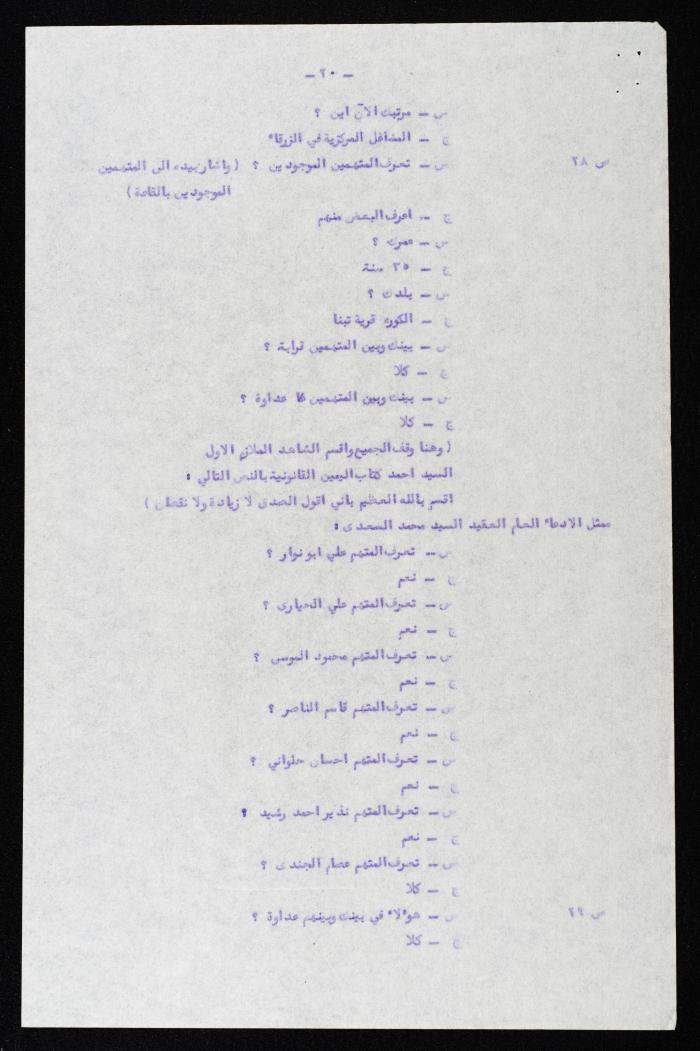 - ٢٠ -
س - مرتبك الآن اين ؟
ج - المشاغل المركزية في الزرقاء
ص ٢٨
س - تعرف المتهمين الموجودين ؟ ( واشار بيده الى المتهمين
الموجودين بالقاعة )
ج - اعرف البعض منهم
س - عمرك ؟
ج - ٢٥ سنة
س - بلدك ؟
ج - الكوره قرية تبنا
س - بينك وبين المتهمين قرابة ؟
ج - كلا
س - بينك وبين المتهمين عداوة ؟
ج - كلا
( وهنا وقف الجميع واقسم الشاهد الملازم الاول
السيد احمد كتاب اليمين القانونية بالنص التالي :
اقسم بالله العظيم باني اقول الصدق لا زيادة ولا نقصان )
ممثل الادعاء العام العقيد السيد محمد السعدى :
س - تعرف المتهم علي ابو نوار ؟
ج - نعم
س - تعرف المتهم علي الحيارى ؟
ج - نعم
س - تعرف المتهم محمود الموسى ؟
ج - نعم
س - تعرف المتهم قاسم الناصر ؟
ج - نعم
س - تعرف المتهم احسان حلواني ؟
ج - نعم
س - تعرف المتهم نذير احمد رشيد ؟
ج - نعم
س - تعرف المتهم عصام الجندى ؟
ج - كلا
ص ٢٩
س - هوءلاء في بينك وبينهم عداوة ؟
ج - كلا